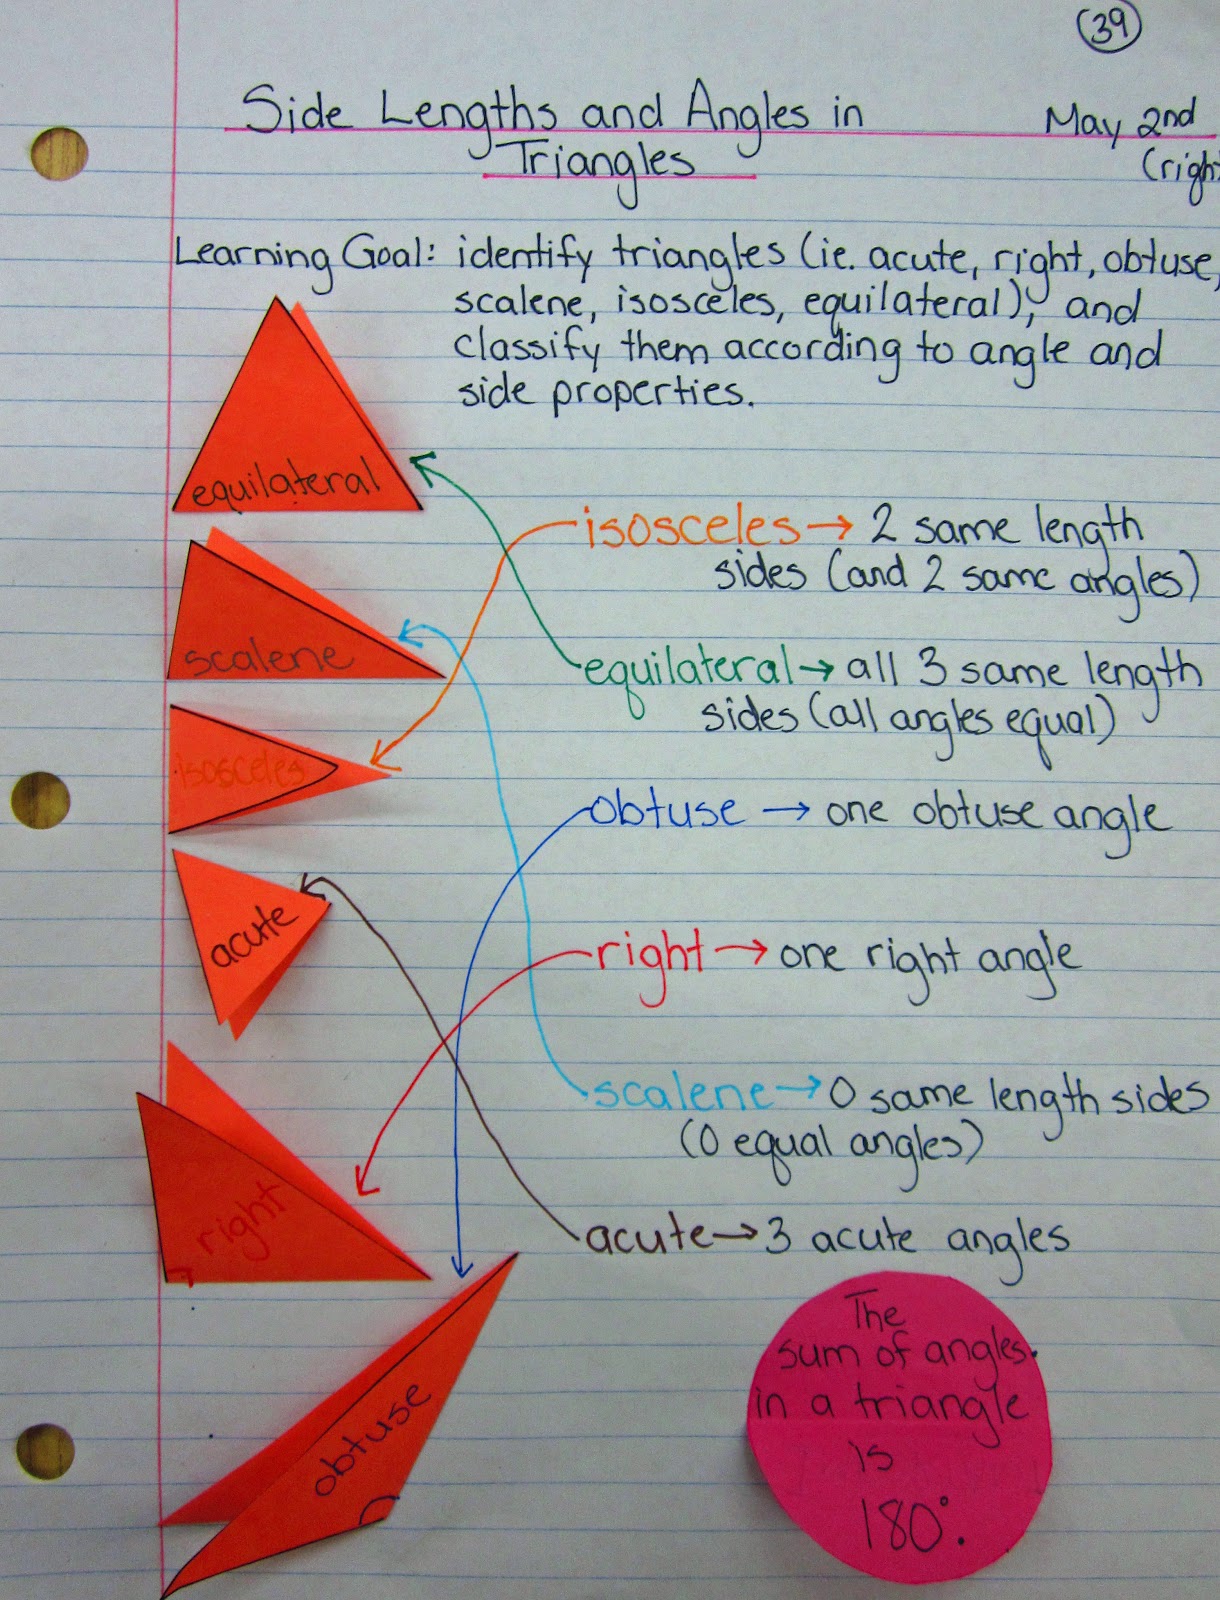 39
Side Lengths and Angles in
Triangles
May 2nd
(right
Learning Goal: identify triangles (ie. acute, right, obtuse,
scalene, isosceles, equilateral), and
classify them according to angle and
side properties.
equilateral
isosceles → 2 same length
sides (and 2 same angles)
scalene
equilateral → all 3 same length
sides (all angles equal)
isosceles
obtuse → one obtuse angle
acute
right → one right angle
scalene → 0 same length sides
(0 equal angles)
right
acute → 3 acute angles
obtuse
The
sum of angles
in a triangle
is
180°.